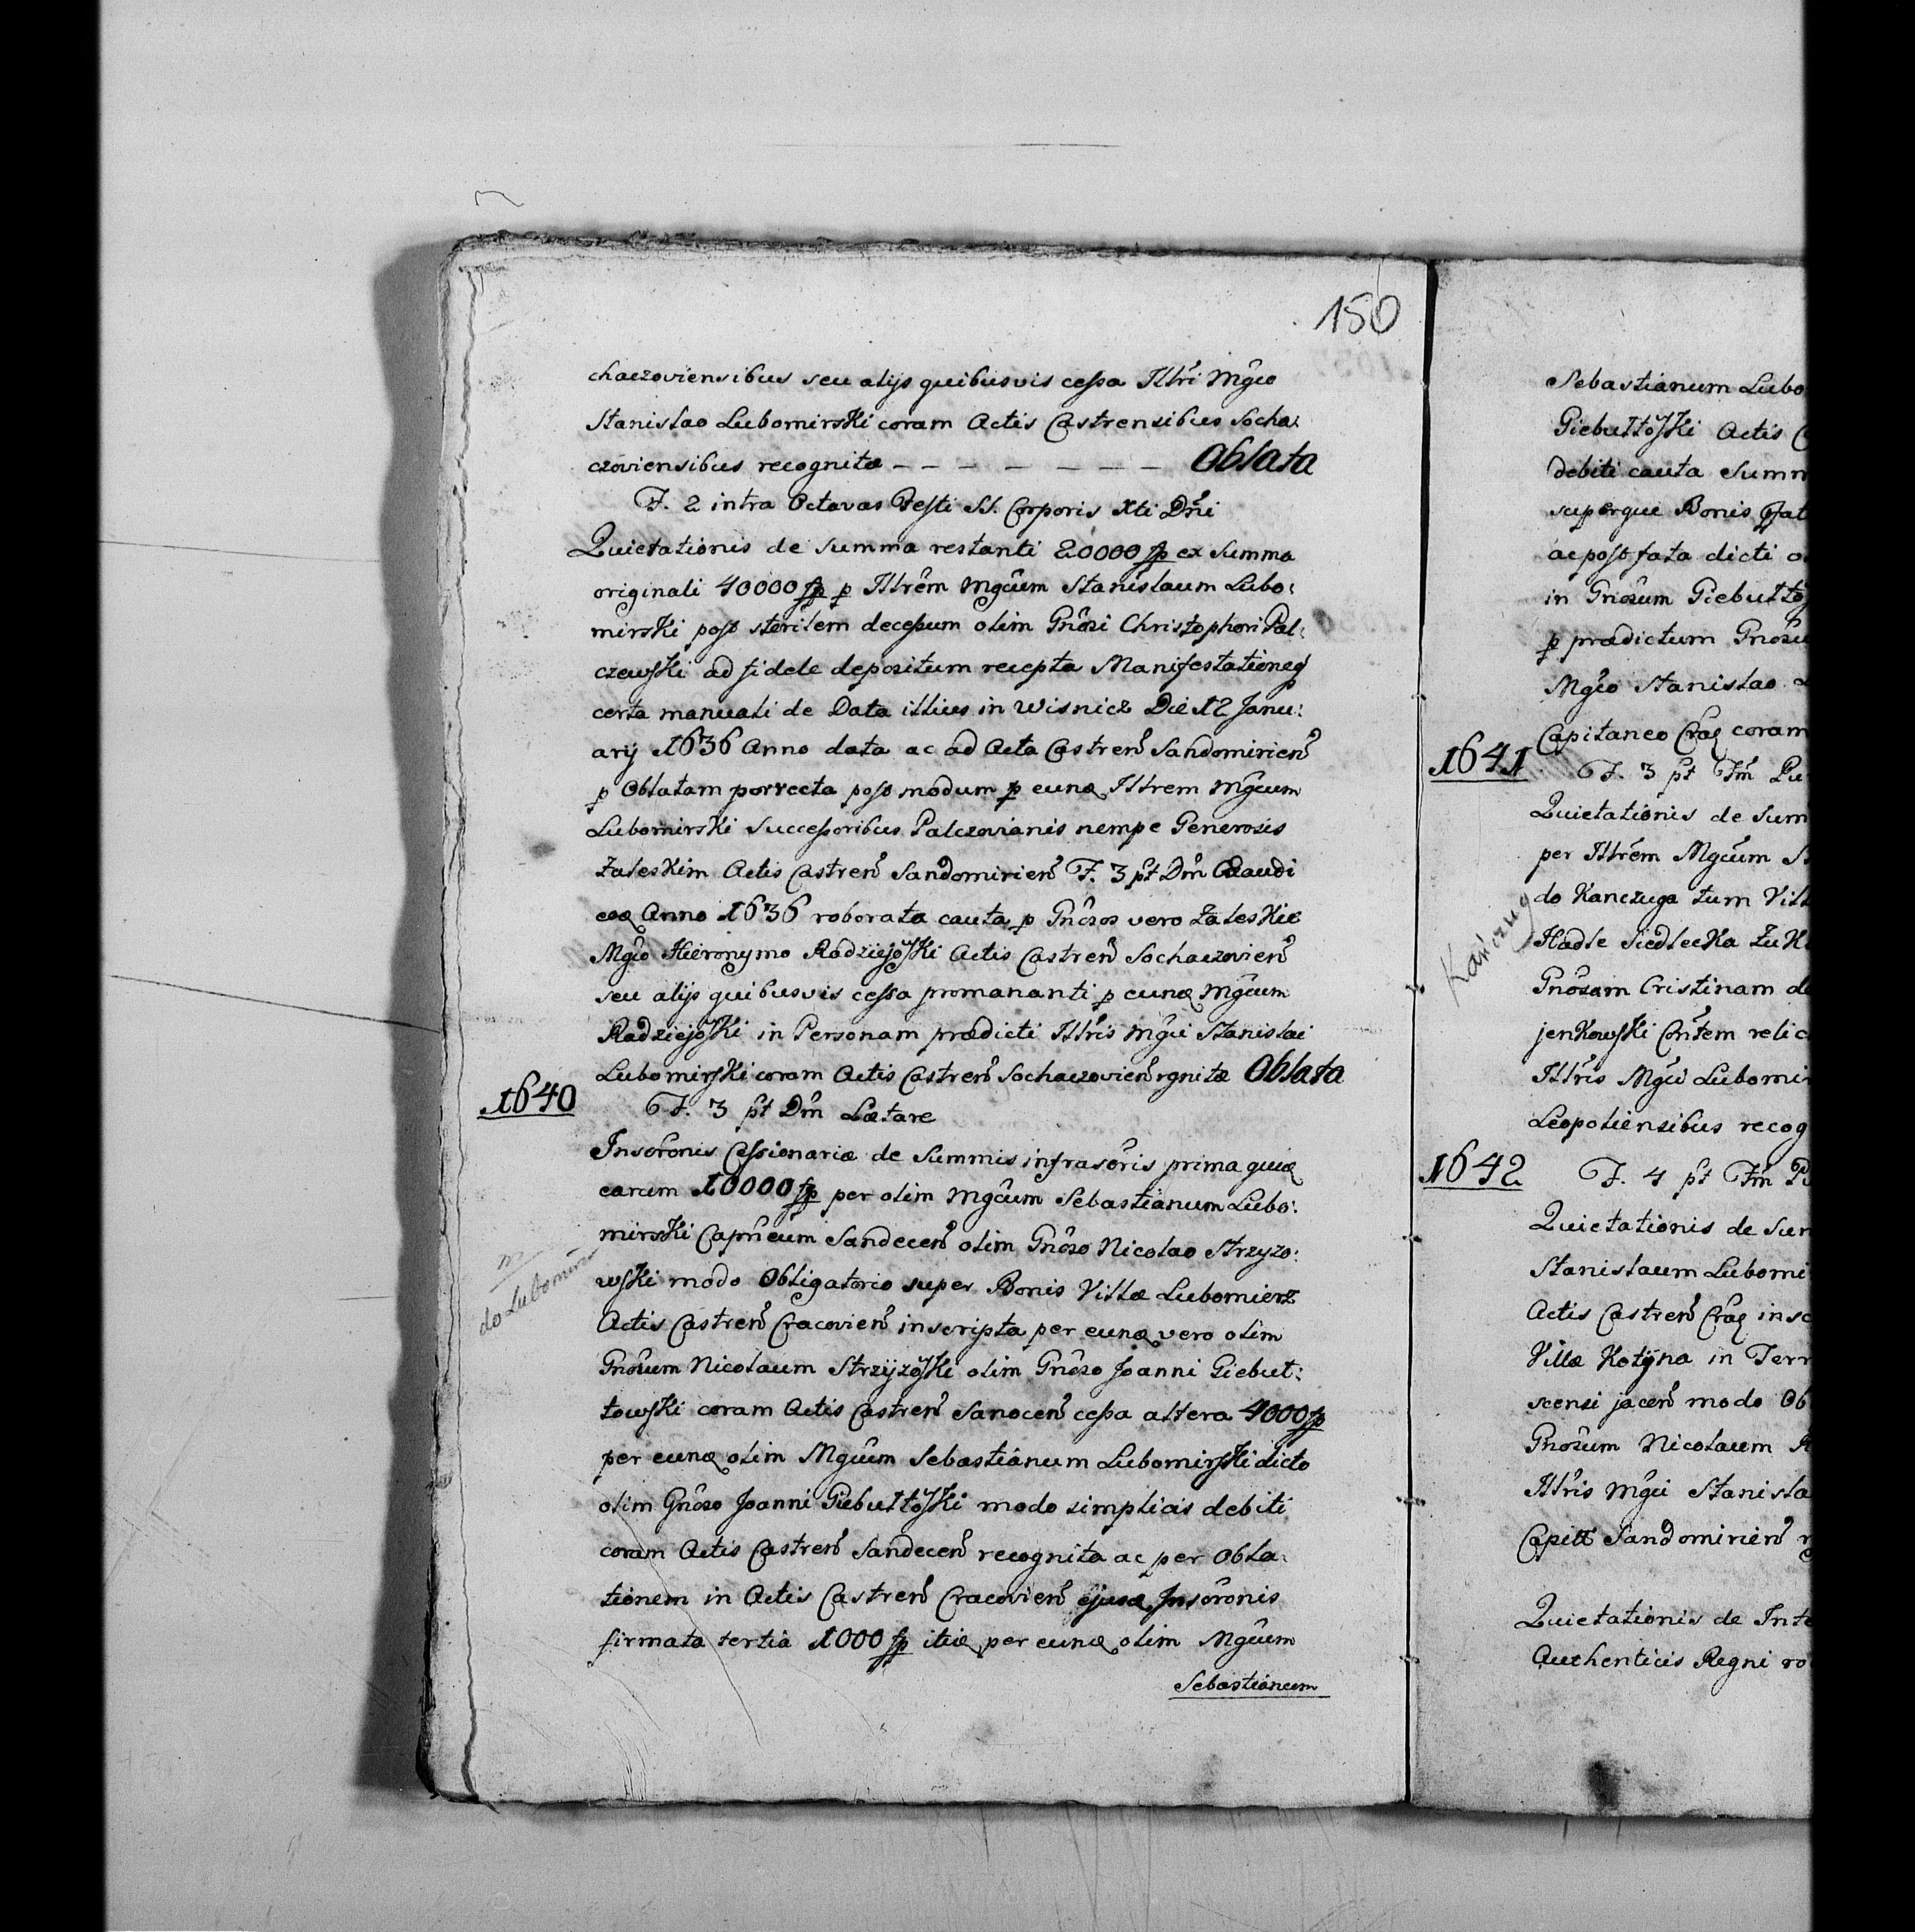 150
chaczoviensibus seu alijs quibusvis cessa Illri Mgco
Stanislao Lubomirski coram Actis Castrensibus Socha:
czoviensibus recognitæ - - - - - - - Oblata
F. 2 intra Octavas Festi SS. Corporis Xti Dñi
Quietationis de Summa restanti 20000 fp ex Summa
originali 40000 fp p Illrem Mgcum Stanislaum Lubo:
mirski post sterilem decessum olim Gnosi Christophori Pal:
czewski ad fidele depositum recepta Manifestationeq
certa manuali de Data illius in Wisnicz Die 12 Janu:
arij 1636 Anno data ac ad Acta Castren Sandomirien
p Oblatam porrecta post modum p eunq Illrem Mgcum
Lubomirski Successoribus Palczovianis nempe Generosis
Zaleskim Actis Castren Sandomirien F. 3 pt Dm
eoq Anno 1636 roborata cauta p Gnosos vero Zaleskie
Mgco Hieronymo Radziejoski Actis Castren Sochaczovien
seu alijs quibusvis cessa promananti p eunq Mgcum
Radziejoski in Personam prædicti Illris Mgci Stanislai
Lubomirski coram Actis Castren Sochaczovien rgnitæ Oblata
1640
F. 3 pt Dm Lætare
Inscronis Cessionariæ de Summis infrascris prima quiq
earum 10000 fp per olim Mgcum Sebastianum Lubo:
mirski Capneum Sandecen olim Gnoso Nicolao Strzyzo:
do Lubomirz
wski modo Obligatorio super Bonis Villæ Lubomierz
Actis Castren Cracovien inscripta per eunq vero olim
Gnosum Nicolaum Strzyzoski olim Gnoso Joanni Giebul:
towski coram Actis Castren Sanocen cessa altera 4000 fp
per eunq olim Mgcum Sebastianum Lubomirski dicto
olim Gnoso Joanni Giebultoski modo simplicis debiti
coram Actis Castren Sandecen recognita ac per Obla:
tionem in Actis Castren Cracovien ejusq Inscronis
firmata tertia 1000 fp itiq per eunq olim Mgcum
Sebastianum
Sebastianum Lubo
Giebultoski Actis C
debiti cauta Summ
superque Bonis
ac post fata dicti o
in Gnosum Giebulto
p prædictum Gnosu
Mgco Stanislao L
Capitaneo Craq coram
1641
F. 3 pt Fm Pu
Quietationis de Sum
per Illrem Mgcum S
Kańczug
do Kanczuga tum Vill
Hadle Siedlecka Zuk
Gnosam Cristinam de
jenkowski Contem relic
Illris Mgci Lubomir
Leopoliensibus recog
1642
F. 4 pt Fm P
Quietationis de Sum
Stanislaum Lubomi
Actis Castren Craq insc
Villæ Kotyna in Terr
scensi jacen modo Ob
Gnosum Nicolaum
Illris Mgci Stanisla
Capitt Sandomirien r
Quietationis de Inte
Authenticis Regni ro